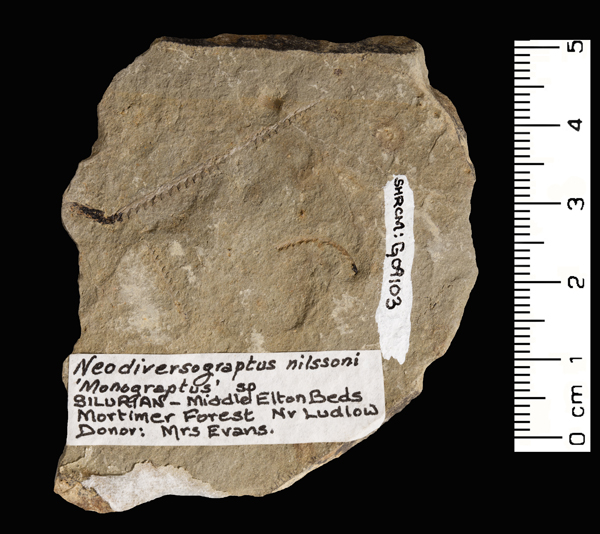 SHRCM: G09103
Neodiversograptus nilssoni
'Monograptus' sp
SILURIAN - Middle Elton Beds
Mortimer Forest Nr Ludlow
Donor: Mrs Evans.
5
4
3
2
1
0 cm